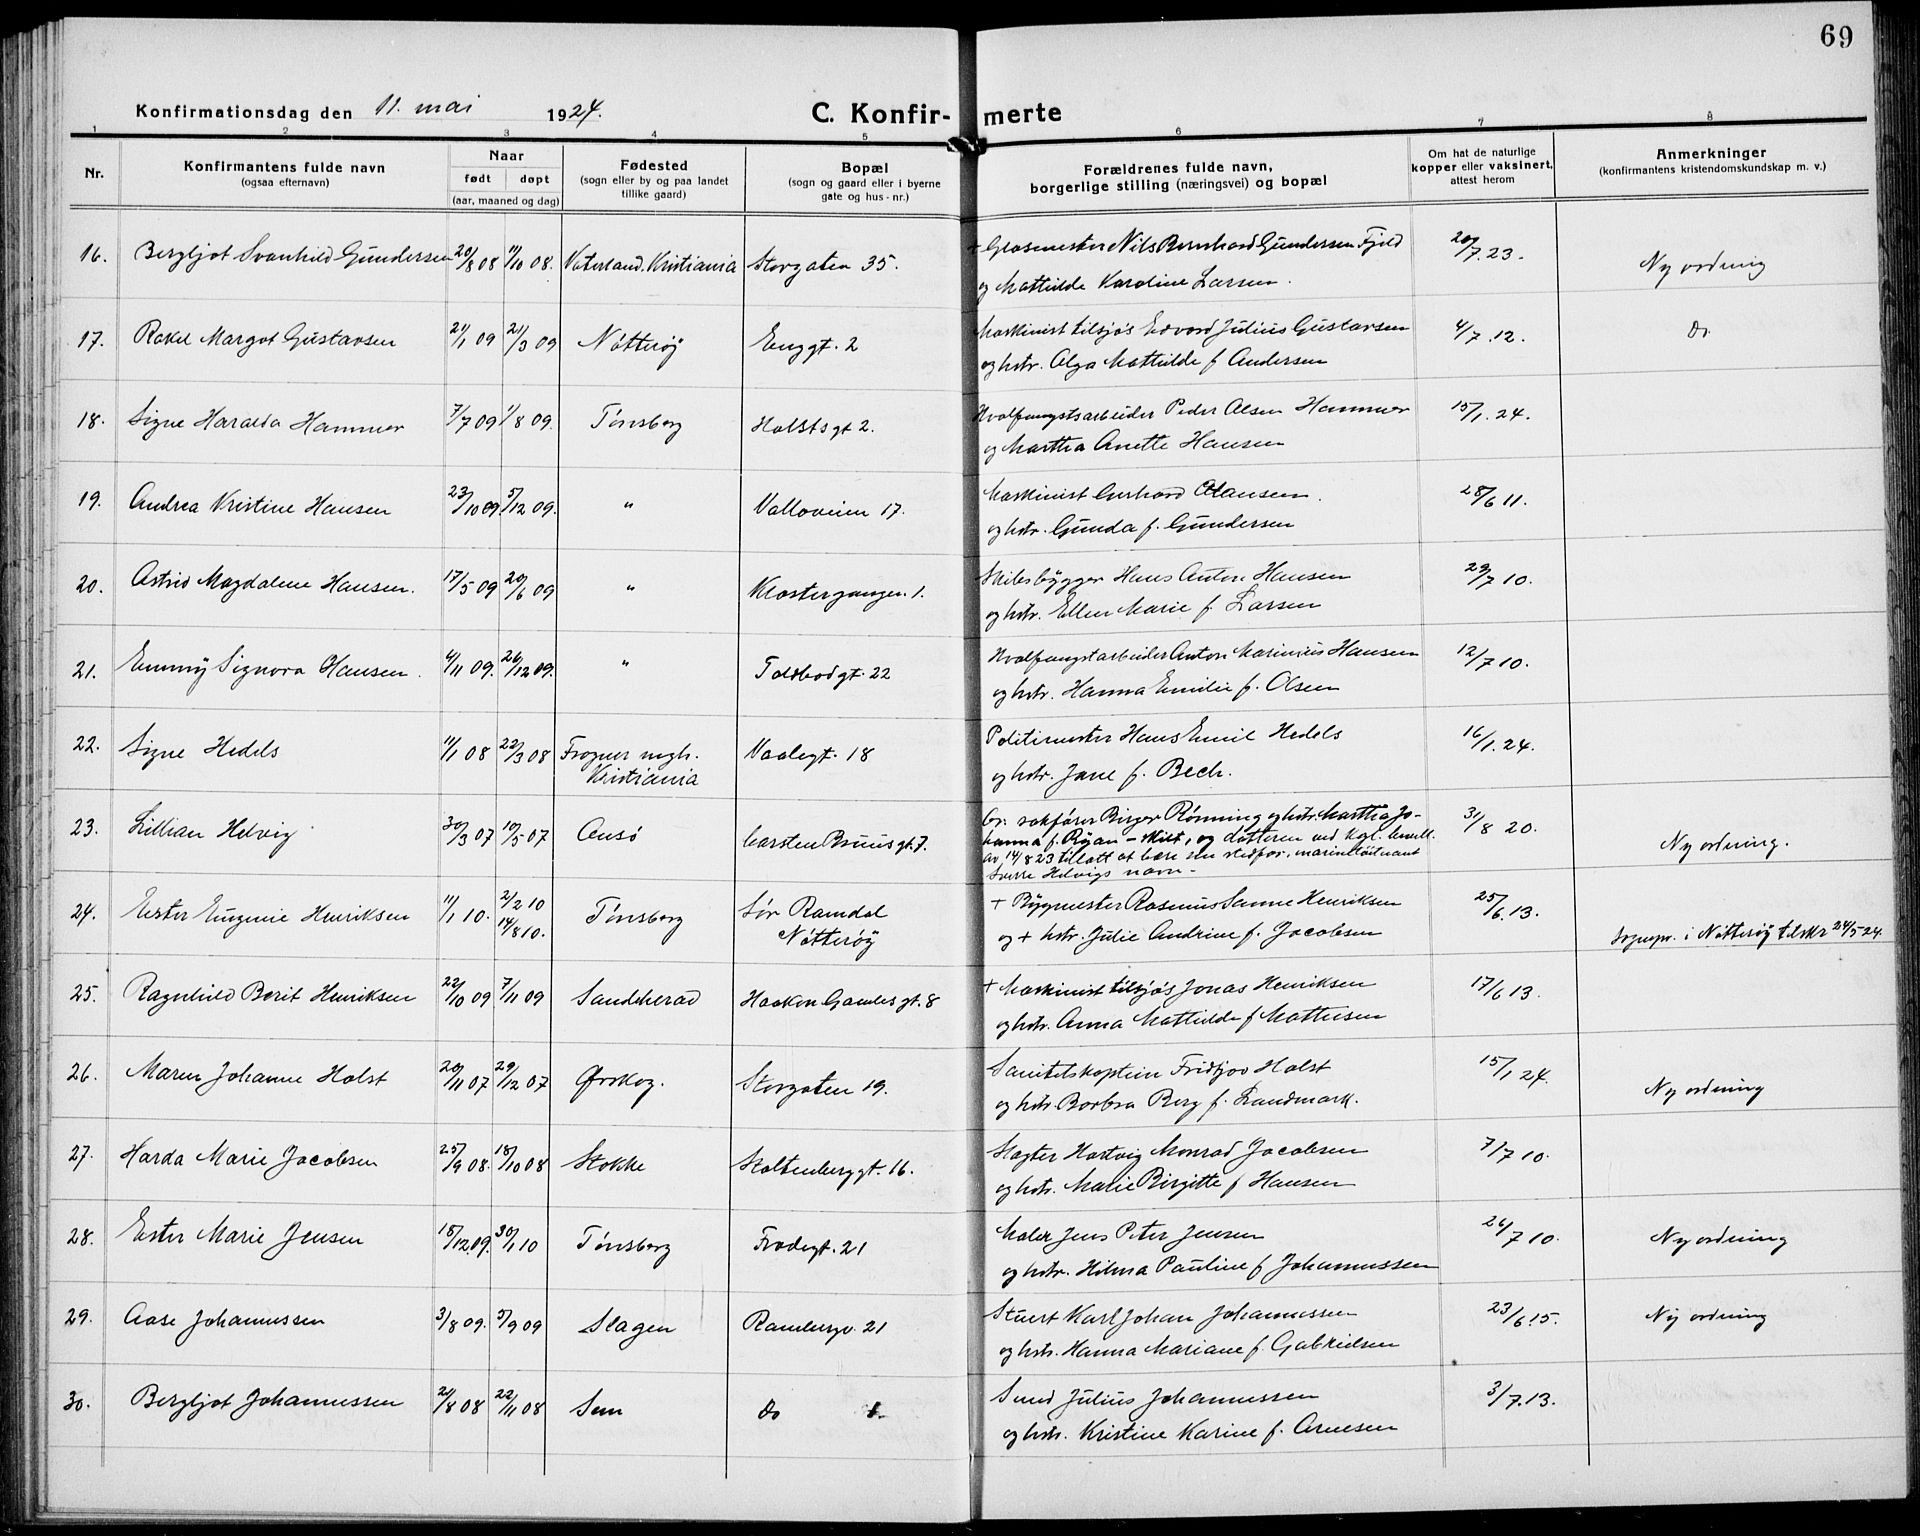 69
Konfirmationsdag den 11. mai 1924.
C. Konfirmerte
1 2 3 4 5 6 7 8
Nr. Konfirmantens fulde navn (ogsaa efternavn) Naar født døpt (aar, maaned og dag) Fødested (sogn eller by og paa landet tillike gaard) Bopæl (sogn og gaard eller i byerne gate og hus-nr.) Forældrenes fulde navn, borgerlige stilling (næringsvei) og bopæl Om hat de naturlige kopper eller vaksinert, attest herom Anmerkninger (konfirmantens kristendomskundskap m. v.)
16. Bergljot Svanhild Gundersen 20/8 08 11/10 08. Vaterland. Kristiania Storgaten 35. + Glasmester Nils Bernhard Gundersen Fjeld 20/7. 23. Ny ordning
og Mathilde Karoline Larsen.
17. Rakel Margot Gustavsen 21/1 09 21/3 09 Nøtterøy Enggt. 2 Maskinist tilsjøs Edvard Julius Gustavsen 4/7. 12. Do
og hstr. Olga Mathilde f Andersen
18. Signe Haralda Hammer 7/7 09 1/8 09. Tønsberg Holstsgt 2. Hvalfangstsarbeider Peder Olsen Hammer 15/1. 24.
og Martha Anette Hansen
19. Andrea Kristine Hansen 23/10 09. 5/12 09. " Valloveien 17. Maskinist Gerhard Hansen. 28/6 11.
og hstr. Gunda f. Gundersen
20. Astrid Magdalene Hansen. 17/5 09 20/6 09 " Klostergangen. 1. Skibsbygger Hans Anton Hansen 29/7 10.
og hstr. Ellen Marie f. Larsen
21. Emmy Signora Hansen. 4/11 09. 26/12 09. " Toldbodgt. 22 Hvalfangstarbeider Anton Marinius Hansen 12/7 10.
og hstr. Hanna Emilie f. Olsen
22. Signe Hedels 11/1 08 22/3 08 Frogner mgh. Kristiania Vaalegt. 18 Politimester Hans Emil Hedels 16/1. 24.
og hstr. Jane f. Bech.
23. Lillian Helvig 30/3 07 10/5 07 Ansø Carsten Bruus gt. 7. Or. sakfører Birger Rønning og hstr. Martha Jo- 31/8 20. Ny ordning.
hanna f. Ryan - skilt, og datteren ved kgl.
av 14/8 23 tillatt at bære sin stedfar, marineløitnant
Sverre Helvigs navn -
24. Ester Eugenie Henriksen 11/1 10. 2/2 10 14/8 10. Tønsberg Sør Ramdal Nøtterøy + Bygmester Rasmus Sanne Henriksen 25/6. 13.
og + hstr. Julie Andrine f. Jacobsen Sognepr. i Nøtterøy tilskr 24/5-24.
25. Ragnhild Berit Henriksen 22/10 09 7/11 09 Sandeherad Haakon Gamles gt. 8 + Maskinist tilsjøs Jonas Henriksen 17/6 13.
og hstr. Anna Mathilde f Mathisen
26. Maren Johanne Holst 20/11 07 29/12 07 Ørskog. Storgaten 19. Sanitetskaptein Fridtjov Holst 15/1 24. Ny ordning
og hstr. Borbra Berg f. Landmark.
27. Harda Marie Jacobsen 25/9 08. 18/10 08 Stokke Stoltenberggt. 16. Slagter Hartvig Monrad Jacobsen 7/7 10.
og hstr. Marie Birgitte f Hansen
28. Ester Marie Jensen 18/12 09. 30/1 10 Tønsberg Frodegt. 21 Maler Jens Peter Jensen 26/7 10. Ny ordning
og hstr. Hilma Pauline f Johannessen
29. Aase Johannessen 3/8 09. 5/9 09 Slagen Rambergv. 21 Stuert Karl Johan Johannessen 23/6. 15. Ny ordning
og hstr. Hanna Mariane f. Gabrielsen
30. Bergljot Johannessen 21/8 08 22/11 08 Sem Do Smed Julius Johannessen 3/7. 13.
og hstr. Kristine Karine f. Arnesen